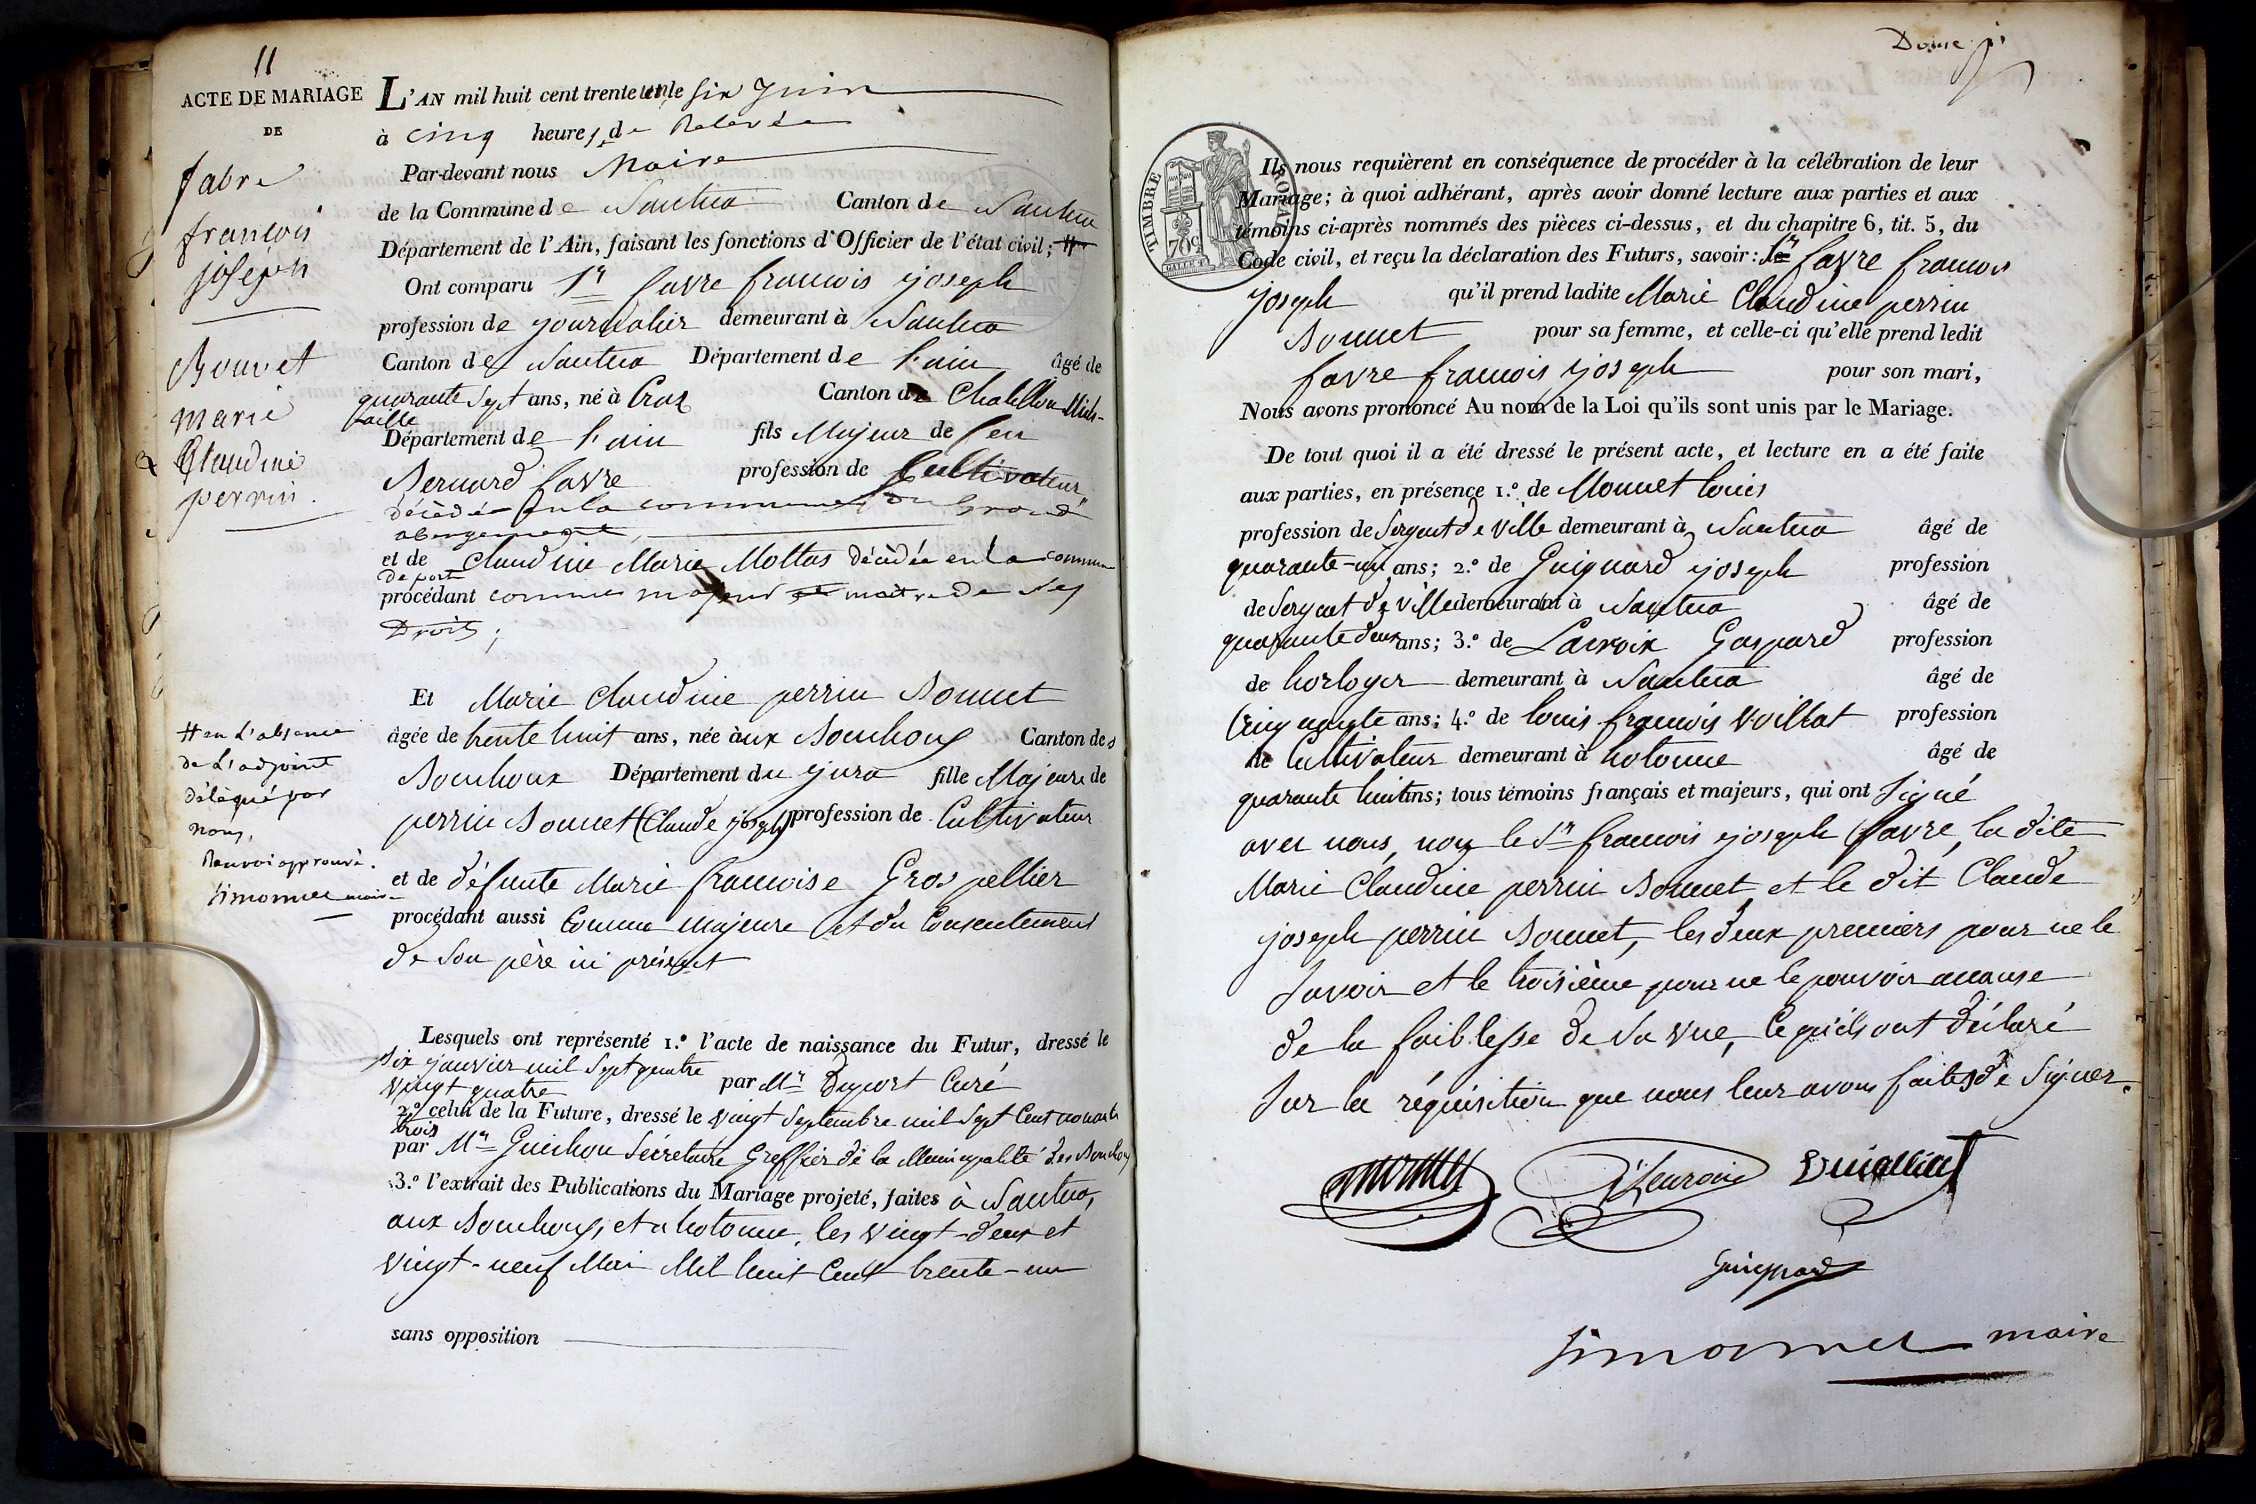 11
ACTE DE MARIAGE
DE
fabre
françois
joseph
Bouvet
marie
Claudine
perrin.
L'AN mil huit cent trente un, le six Juin
à cinq heures de Relevée
Par-devant nous Maire
de la Commune de Nantua Canton de Nantua
Département de l'Ain, faisant les fonctions d'Officier de l'état civil; #
Ont comparu Sr favre francois joseph
profession de journalier demeurant à Nantua
Canton de Nantua Département de l'ain âgé de
quarante sept ans, né à Craz Canton de Chatillon Mich-
aille
Département de l'ain fils Majeur de feu
Bernard favre profession de Cultivateur,
décédé en la commune du Grand
abergement,
et de Claudine Marie Mottas décédée en la commune
de port
procédant comme majeur et maitre de ses
Droits;
Et Marie Claudine perrin Bonnet
âgée de trente huit ans, née aux Bouchoux Canton des
Bouchoux Département du jura fille Majeure de
perrin Bonnet (Claude joseph) profession de Cultivateur
et de défunte Marie francoise Gros pellier
procédant aussi Comme majeure et du Consentement
de son père ici présent
# en L'absence
de L'adjoint
délégué par
nous,
Renvoi approuvé.
Simonnet maire
Lesquels ont représenté 1.º l'acte de naissance du Futur, dressé le
six janvier mil sept quatre
vingt quatre par Mr Duport Curé
2.º celui de la Future, dressé le vingt Septembre mil sept Cent nonante
trois
par Mr Guichon Sécretaire Greffier de la Municipalité des Bouchoux
3.º l'extrait des Publications du Mariage projeté, faites à Nantua,
aux Bouchoux, et a hotonne, les vingt-deux et
vingt-neuf Mai Mil huit Cent trente-un
sans opposition
Douze
TIMBRE ROYAL
70c
Ils nous requièrent en conséquence de procéder à la célébration de leur
Mariage; à quoi adhérant, après avoir donné lecture aux parties et aux
témoins ci-après nommés des pièces ci-dessus, et du chapitre 6, tit. 5, du
Code civil, et reçu la déclaration des Futurs, savoir: le Sr favre francois
joseph qu'il prend ladite Marie Claudine perrin
Bonnet pour sa femme, et celle-ci qu'elle prend ledit
favre francois joseph pour son mari,
Nous avons prononcé Au nom de la Loi qu'ils sont unis par le Mariage.
De tout quoi il a été dressé le présent acte, et lecture en a été faite
aux parties, en présence 1.º de Monnet louis
profession de Sergent de ville demeurant à Nantua âgé de
quarante-un ans; 2.º de Guignard joseph profession
de Sergent de ville demeurant à Nantua âgé de
quarante deux ans; 3.º de Lacroix Gaspard profession
de horloger demeurant à Nantua âgé de
Cinquante ans; 4.º de louis francois Voillat profession
de Cultivateur demeurant à hotonne âgé de
quarante huit ans; tous témoins français et majeurs, qui ont signé
avec nous, non le Sr francois joseph favre, la dite
Marie Claudine perrin Bonnet et le dit Claude
joseph perrin Bonnet, les deux premiers pour ne le
savoir et le troisième pour ne le pouvoir acause
de la faiblesse de sa vue, Ce qu'ils ont déclaré
sur la réquisition que nous leur avons faites de signer.
Guignard
Simonnet maire